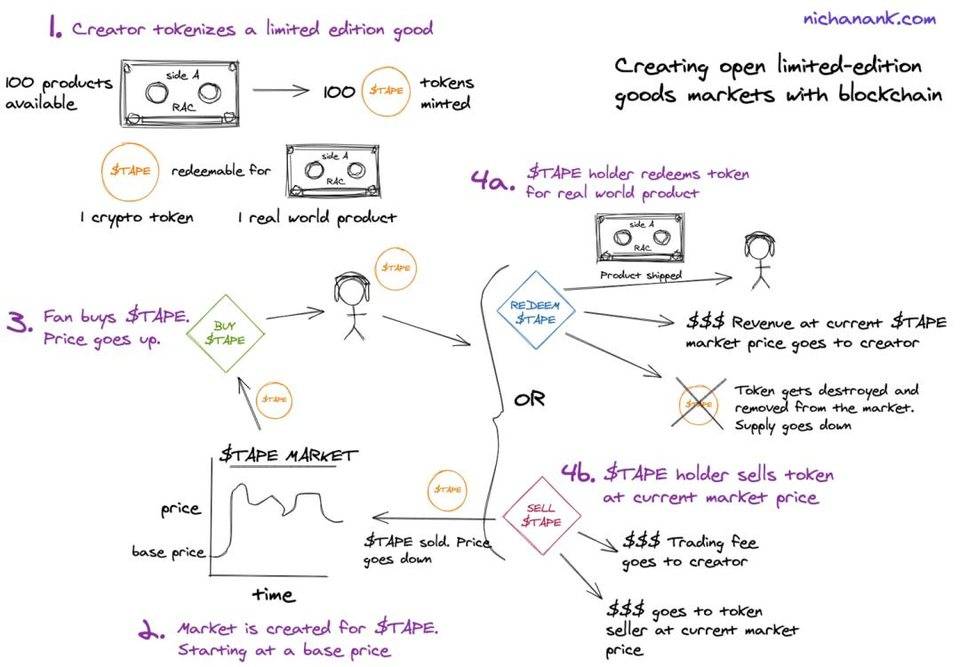 nichanank.com
Creating open limited-edition
goods markets with blockchain
1. Creator tokenizes a limited edition good
100 products
available
side A
RAC
100 $TAPE tokens
minted
$TAPE redeemable for
side A
RAC
1 crypto token
1 real world product
2. Market is created for $TAPE.
Starting at a base price
$TAPE MARKET
price
base price
time
3. Fan buys $TAPE.
Price goes up.
$TAPE
BUY
$TAPE
$TAPE
OR
4a. $TAPE holder redeems token
for real world product
side A
RAC
Product shipped
REDEEM
$TAPE
$$$ Revenue at current $TAPE
market price goes to creator
$TAPE
Token gets destroyed and
removed from the market.
Supply goes down
4b. $TAPE holder sells token
at current market price
SELL
$TAPE
$TAPE
$TAPE sold. Price
goes down
$$$ Trading fee
goes to creator
$$$ goes to token
seller at current market
price